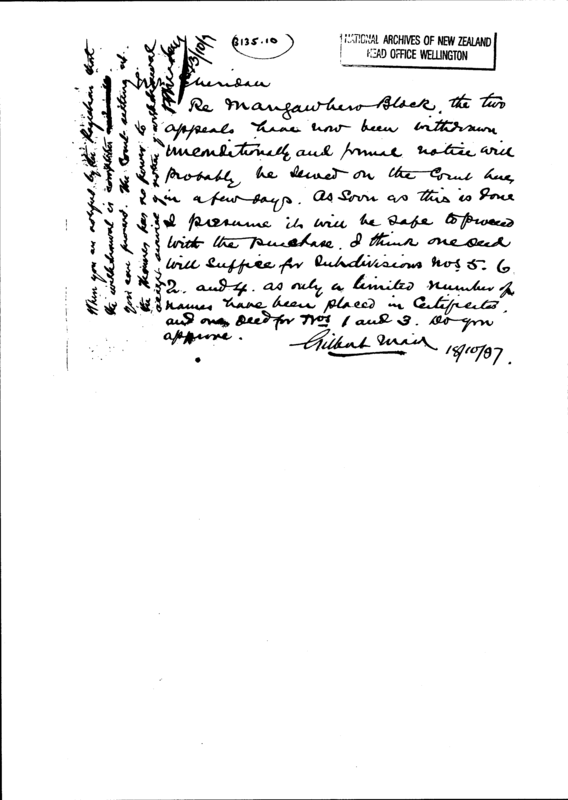 B135.10
NATIONAL ARCHIVES OF NEW ZEALAND
HEAD OFFICE WELLINGTON
Sheridan
Re Mangawhero Block, the two
appeals have now been withdrawn
unconditionally and formal notice will
probably be served on the Court here
in a few days. As soon as this is done
I presume it will be safe to proceed
with the purchase. I think one deed
will suffice for Subdivisions Nos 5. 6
2. and 4. as only a limited number of
names have been placed in Certificates,
and one deed for Nos 1 and 3. Do you
approve.
Gilbert Mair
18/10/97.
When you are notified by the Registrar that
the withdrawal is complete
you can proceed. The Court sitting at
the Thames has no power to
accept service of notice of withdrawal